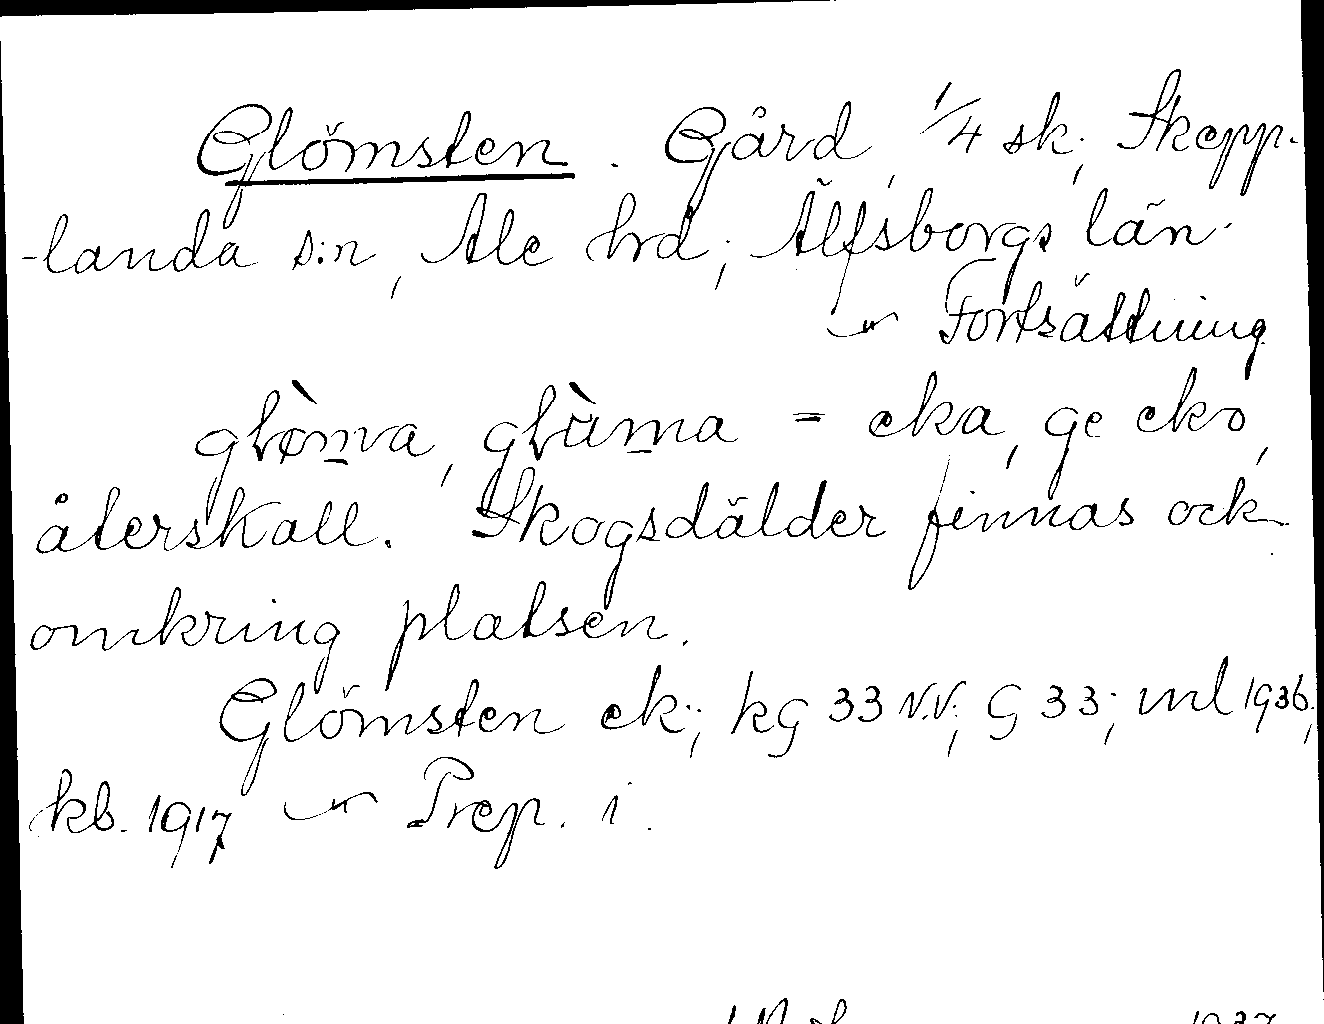 Glömsten. Gård, 1/4 sk; Skepp-
-landa s:n, Ale hrd; Älfsborgs län.
Fortsättning
= eka, ge eko,
återskall. Skogsdälder finnas ock
omkring platsen.
Glömsten ek; kg 33 N.V.; G 33; ml 1936;
kb. 1917 -"- Prep. i.
1937